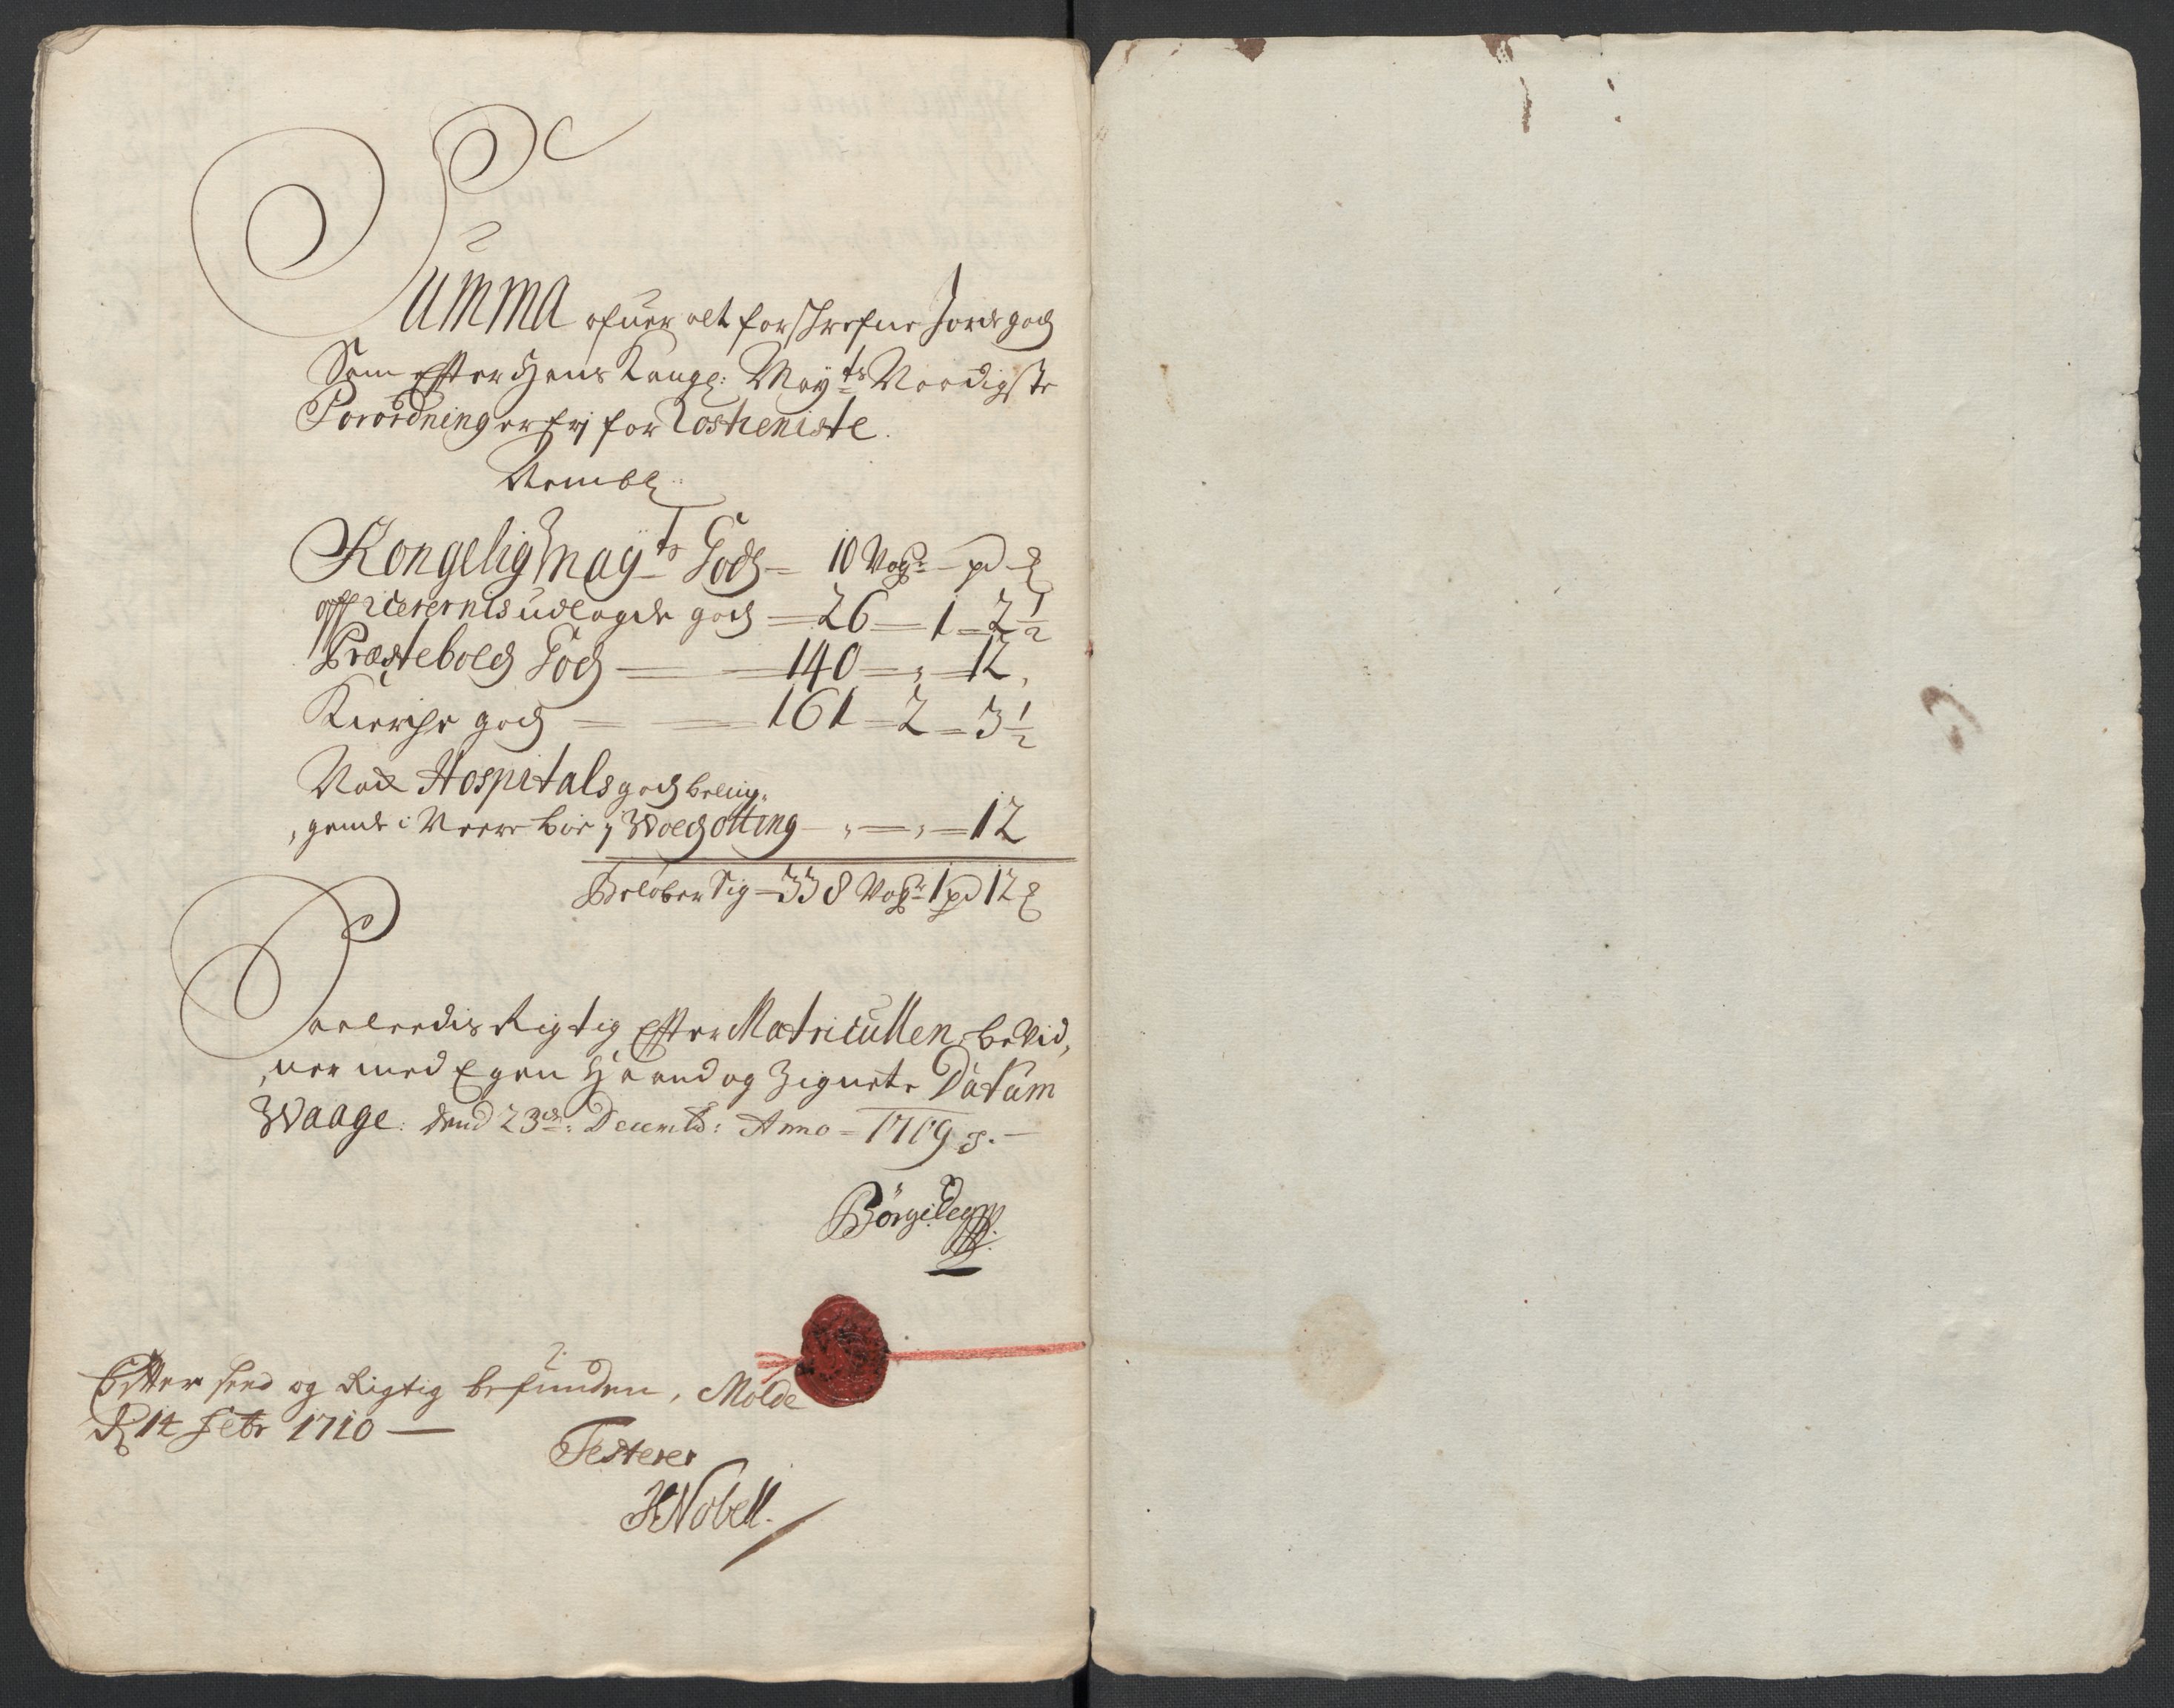 Summa ofuer alt forschrefne Jordegods
Som Efter Hans Kongl: Mayts Naadigste
Forordning er frj for Rostieniste.
Nembl:
Kongelig Mayts Gods = 10 Voger - pd - 
officerernis udlagde gods = 26 = 1 = 2 1/2
Præstebols Gods = 140 = , = 12,
Kierche gods = 161 = 2 = 3 1/2
Nock Hospitals gods belig,
,gende i Weere boe i Wolds otting - , = , = 12
Beløber Sig = 338 Voger 1 pd 12
Saaleedis Rigtig Efter Matricullen, bevid,
,ner med Egen Haand og Zignete Datum
Waage: dend 23de: Decemb: Anno = 1709
Børge
Efter seed og Rigtig befunden, Molde
d 14 Febr 1710
Testerer
HNobell.